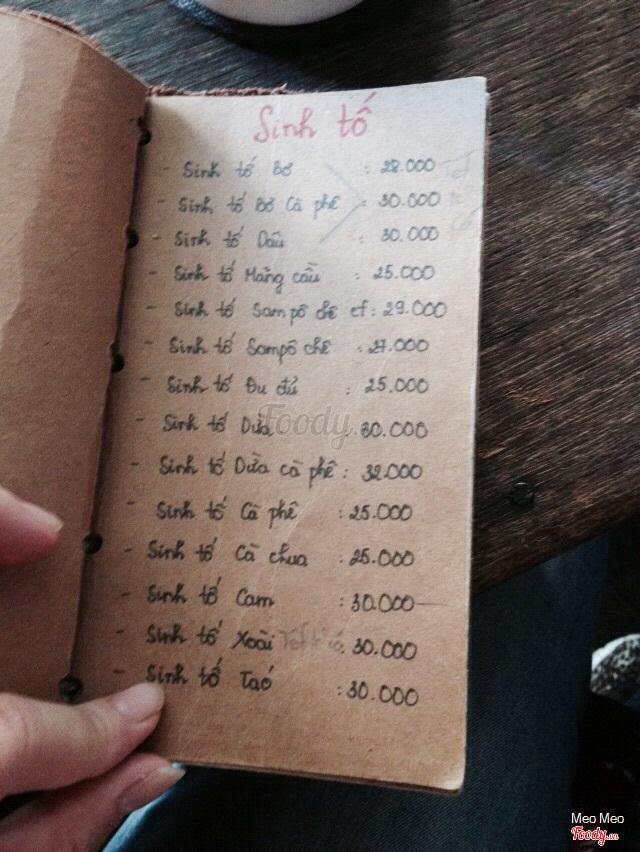 Sinh tố
- Sinh tố Bơ : 28.000
- Sinh tố Bơ Cà phê : 30.000
- Sinh tố Dâu : 30.000
- Sinh tố Mãng cầu : 25.000
- Sinh tố Sampô chê cf : 29.000
- Sinh tố Sampô chê : 27.000
- Sinh tố Đu đủ : 25.000
- Sinh tố Dừa 30.000
- Sinh tố Dừa cà phê : 32.000
- Sinh tố Cà phê : 25.000
- Sinh tố Cà chua : 25.000
- Sinh tố Cam : 30.000
- Sinh tố Xoài : 30.000
- Sinh tố Táo : 30.000
Foody
Meo Meo
Foody.vn